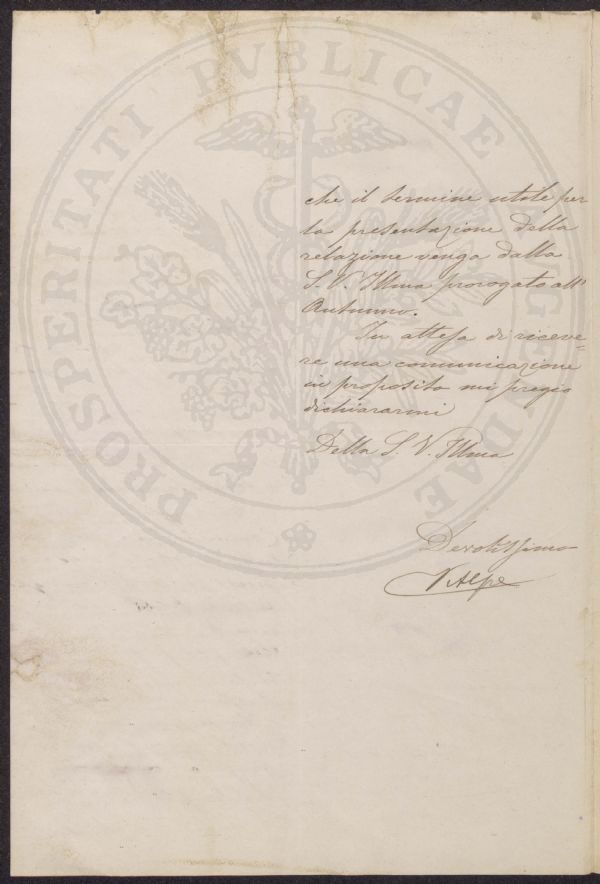 che il termine utile per
la presentazione della
relazione venga dalla
S. V. Illma prorogato all'
Autunno.
In attesa di riceve=
re una comunicazione
in proposito mi pregio
dichiararmi
Della S. V. Illma
Devotissimo
V. Alpe
PROSPERITATI PVBLICAE AVGENDAE